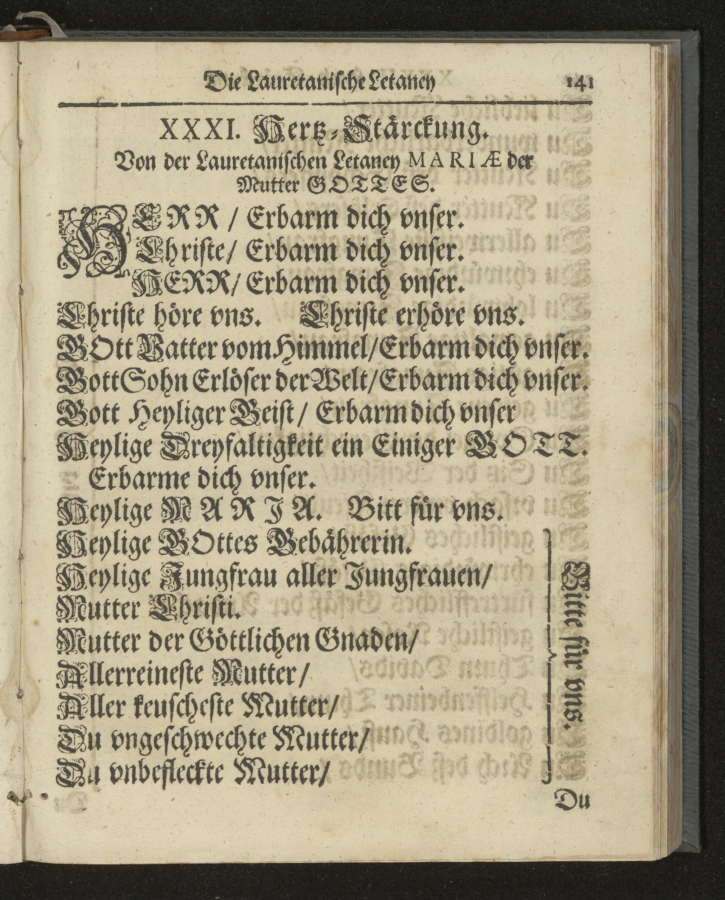 Die Lauretanische Letaney 141
XXXI. Hertz-Stärckung.
Von der Lauretanischen Letaney MARIÆ der
Mutter GOTTES.
HERR / Erbarm dich vnser.
Christe / Erbarm dich vnser.
HERR / Erbarm dich vnser.
Christe höre vns. Christe erhöre vns.
GOtt Vatter vom Himmel / Erbarm dich vnser.
Gott Sohn Erlöser der Welt / Erbarm dich vnser.
Gott Heyliger Geist / Erbarm dich vnser
Heylige Dreyfaltigkeit ein Einiger GOTT.
Erbarme dich vnser.
Heylige MARJA. Bitt für vns.
Heylige GOttes Gebährerin.
Heylige Jungfrau aller Jungfrauen /
Mutter Christi.
Mutter der Göttlichen Gnaden /
Allerreineste Mutter /
Aller keuscheste Mutter /
Du vngeschwechte Mutter /
Du vnbefleckte Mutter /
Bitte für vns.
Du